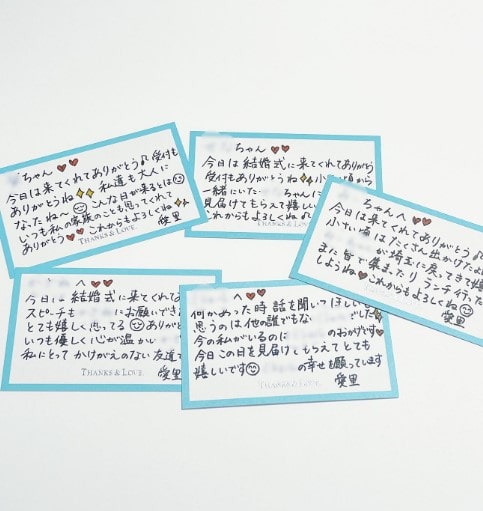 ちゃん
今日は来てくれてありがとう♪受付も
ありがとうね 私達も大人に
なったね〜 こんな日が来るとは
いつも私の家族のことも思ってくれて
ありがとう これからもよろしくね
愛里
THANKS & LOVE.
ちゃん
今日は結婚式に来てくれてありがとう
受付もありがとうね 小 頃から
一緒にいた ちゃんに
見届けてもらえて嬉しい
これからもよろしくね♪
ちゃんへ
今日は来てくれてありがとう♪
小さい頃はたくさん出かけたよ
が埼玉に戻ってきて嬉
また皆で集まったりランチ行った
しようね これからもよろしくね
愛里
へ
今日 結婚式に来てくれてあ
スピーチも にお願いでき
とても嬉しく思ってる ありがと
いつも優しく心が温か
私にとってかけがえのない友達で
愛里
THANKS & LOVE.
へ
何かあった時話を聞いてほしい
思うのは他の誰でもな でし
今の私がいるのに のおかげです
今日この日を見届けてもらえてとても
嬉しいです の幸せを願っています
愛里
THANKS & LOVE.